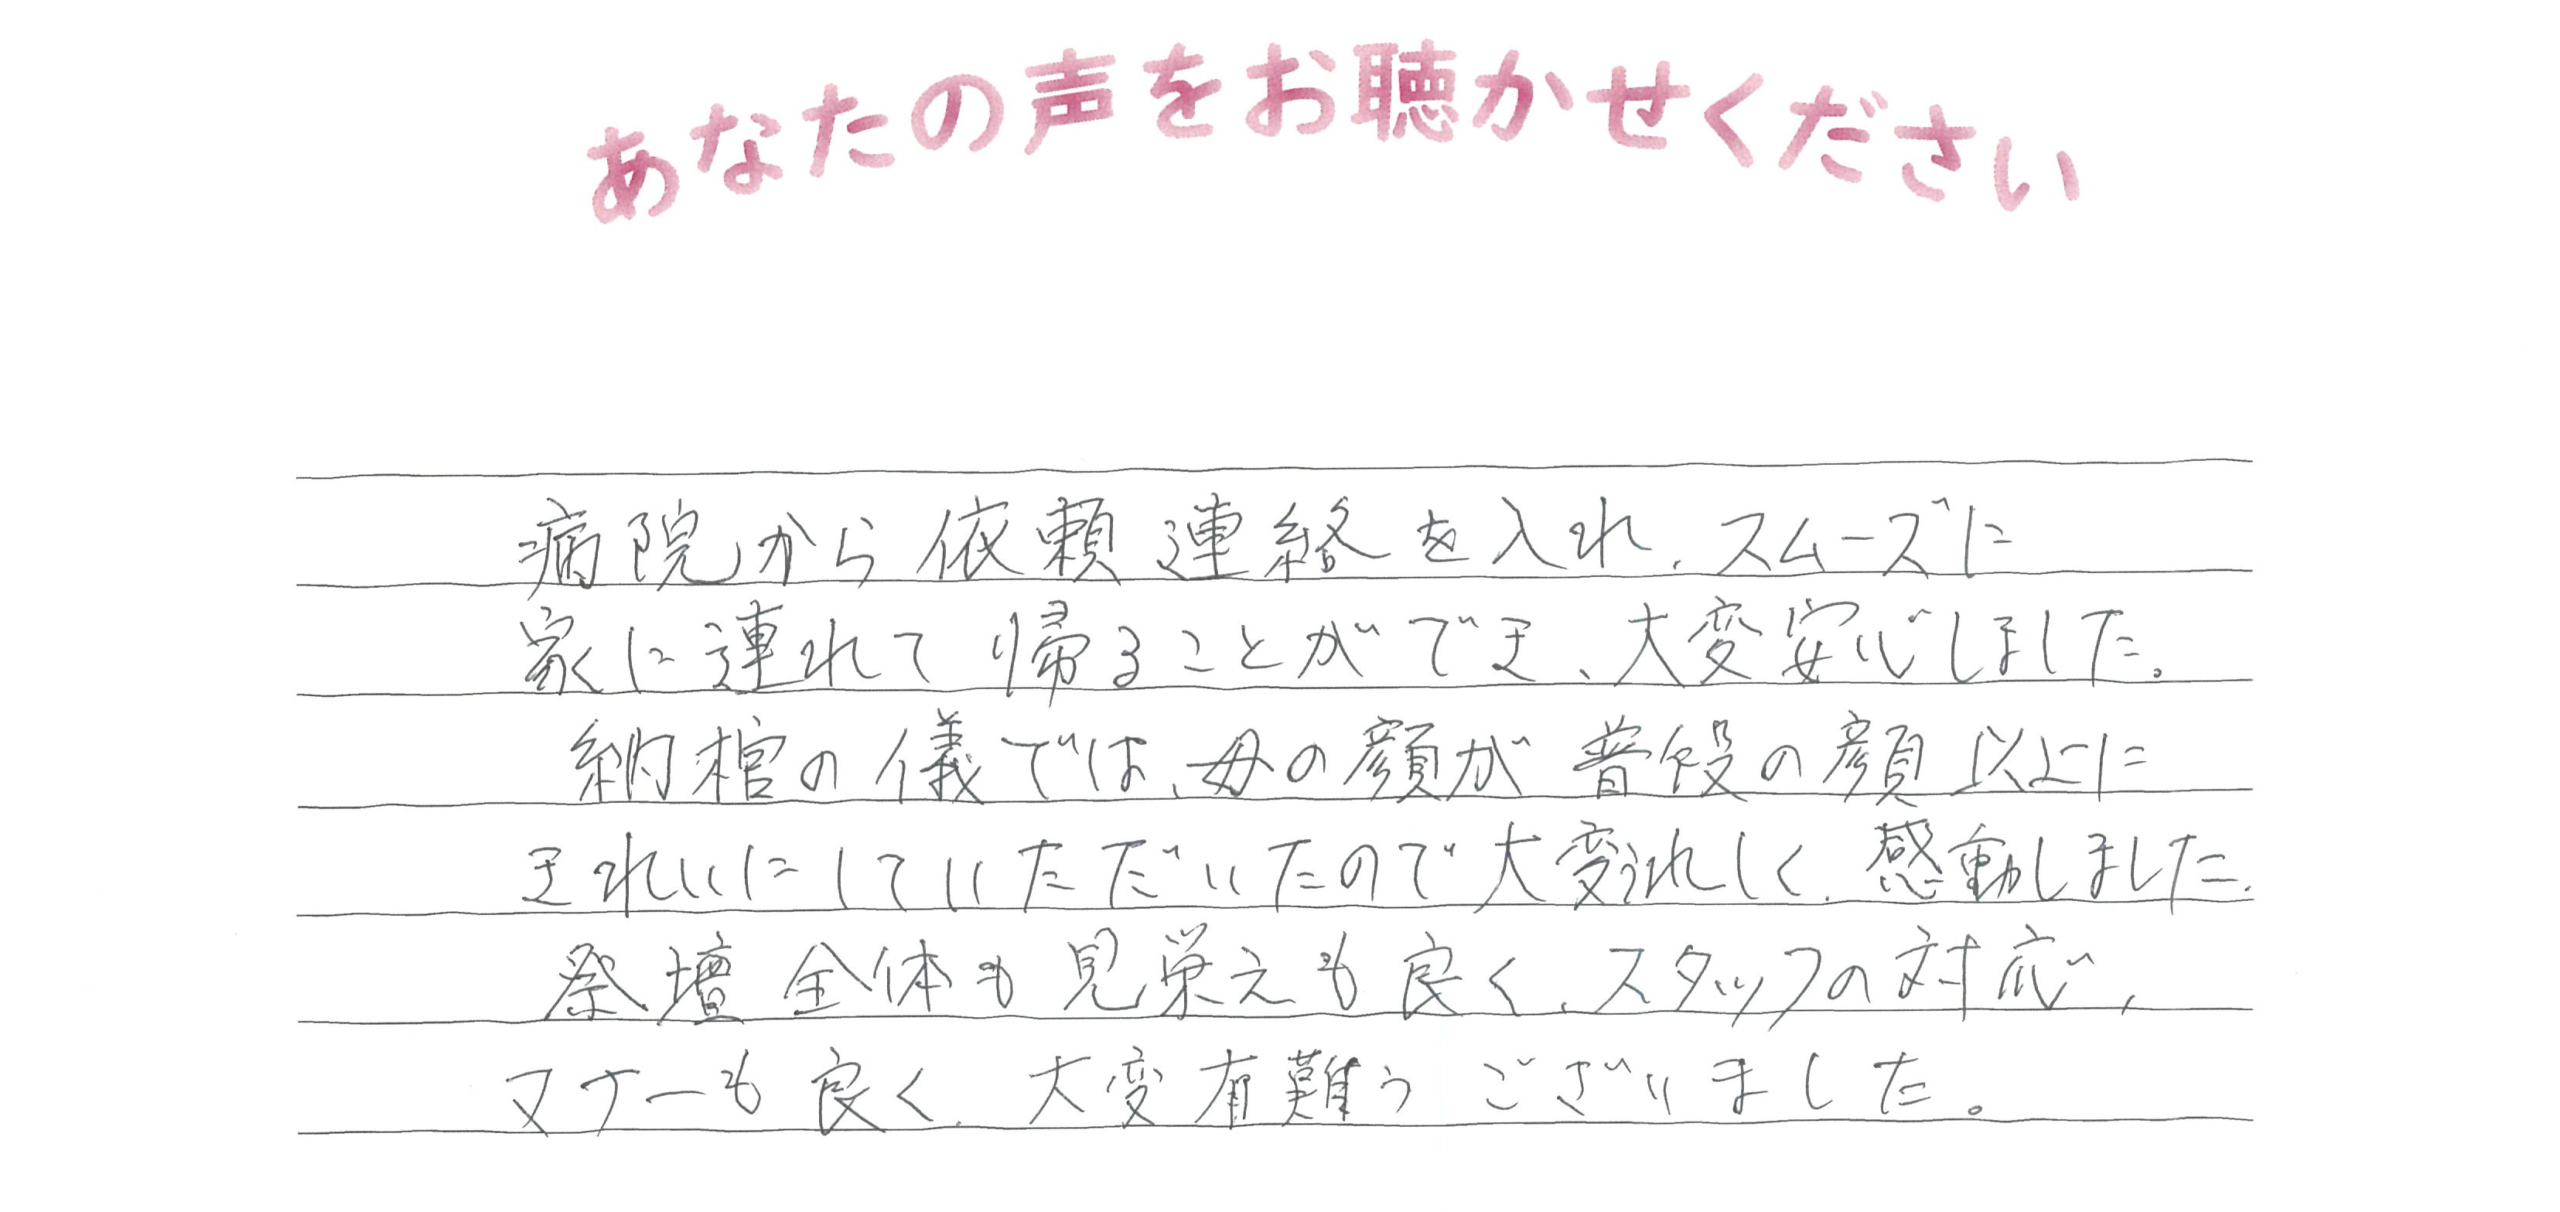 あなたの声をお聴かせください
病院から依頼連絡を入れ、スムーズに
家に連れて帰ることができ、大変安心しました。
納棺の儀では、母の顔が普段の顔以上に
きれいにしていただいたので大変うれしく、感動しました。
祭壇全体も見栄えも良く、スタッフの対応、
マナーも良く、大変有難うございました。